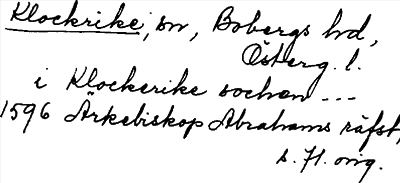 Klockrike, sn, Bobergs hd,
Österg. l.
i Klockerike sochen ---
1596 Ärkebiskop Abrahams räfst,
s. 71. orig.